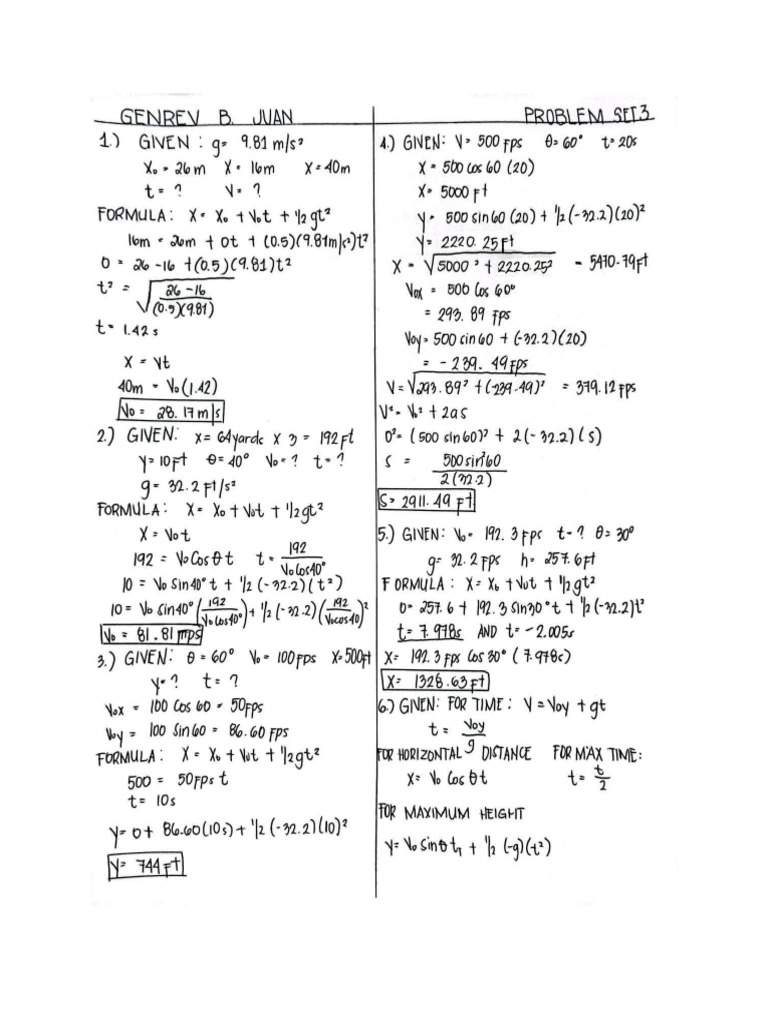 GENREV B. JUAN
PROBLEM SET 3
1.) GIVEN : g= 9.81 m/s²
X₀ = 26m X = 16m X = 40m
t = ? V = ?
FORMULA: X = X₀ + V₀t + 1/2 gt²
16m = 26m + 0t + (0.5)(9.81m/s²)t²
0 = 26-16 + (0.5)(9.81)t²
t² = √26-16/(0.5)(9.81)
t = 1.42 s
X = Vt
40m = V₀(1.42)
V₀ = 28.17 m/s
2.) GIVEN: X = 64yards X 3 = 192 ft
y = 10ft θ = 40° V₀ = ? t = ?
g = 32.2 ft/s²
FORMULA: X = X₀ + V₀t + 1/2gt²
X = V₀t
192 = V₀Cosθ t t = 192/V₀Cos40°
10 = V₀ Sin40° t + 1/2 (-32.2)(t²)
10 = V₀ Sin40° (192/V₀Cos40°) + 1/2 (-32.2) (192/V₀cos40)²
V₀ = 81.81 mps
3.) GIVEN: θ = 60° V₀ = 100FPS X = 500ft
y = ? t = ?
V₀x = 100 Cos 60 = 50FPS
V₀y = 100 Sin60 = 86.60 FPS
FORMULA: X = X₀ + V₀t + 1/2gt²
500 = 50FPS t
t = 10s
y = 0 + 86.60(10s) + 1/2 (-32.2)(10)²
y = 744 ft
4.) GIVEN: V = 500 FPS θ = 60° t = 20s
X = 500 Cos 60 (20)
X = 5000 ft
y = 500 sin 60 (20) + 1/2 (-32.2)(20)²
y = 2220.25 ft
X = √5000² + 2220.25² = 5470.79ft
V₀x = 500 Cos 60°
= 293.89 FPS
V₀y = 500 sin60 + (-32.2)(20)
= -239.49 FPS
V = √293.89² + (-239.49)² = 379.12 FPS
V² = V₀² + 2as
0² = (500 sin60)² + 2(-32.2)(s)
s = 500 sin²60/2(32.2)
S = 2911.49 ft
5.) GIVEN: V₀ = 192.3 FPS t = ? θ = 30°
g = 32.2 FPS h = 257.6 ft
FORMULA: X = X₀ + V₀t + 1/2gt²
0 = 257.6 + 192.3 sin30° t + 1/2 (-32.2)t²
t = 7.978s AND t = -2.005s
X = 192.3 FPS Cos 30° (7.978s)
X = 1328.63 ft
6.) GIVEN: FOR TIME: V = V₀y + gt
t = V₀y/g
FOR HORIZONTAL DISTANCE FOR MAX TIME:
X = V₀ Cosθt t = t/2
FOR MAXIMUM HEIGHT
y = V₀ sinθ t₁ + 1/2 (-g)(t²)